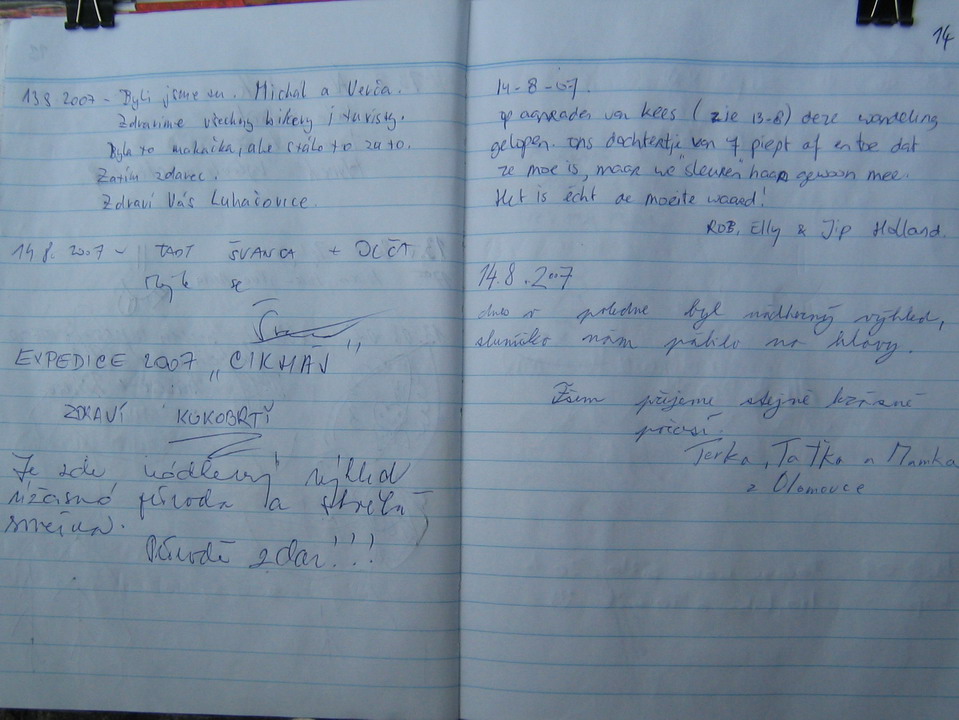 13.8.2007 - Byli jsme zu. Michal a Verča.
Zdravíme všechny hikery i turisty.
Byla to makačka, ale stálo to za to.
Zatím zdavec.
Zdraví Vás Luhačovice.
14.8. 2007 - ŠVANCA +
se
EXPEDICE 2007 „CIKHAJ"
ZDRAVÍ KOKOBRTŘI
Je zde nádherný výhled
úžasná příroda a
Přírodě zdar!!!
14
14-8-07.
op aanraden van Kees (zie 13-8) deze wandeling
gelopen. Ons dochtertje van 7 piept af en toe dat
ze moe is, maar we "sleuren" haar gewoon mee.
Het is écht de moeite waard!
ROB, Elly & Jip Holland.
14.8.2007
dnes v poledne byl nádherný výhled,
sluníčko nám pálilo na hlavy.
Všem přejeme stejně krásné
počasí.
Terka, Taťka a Mamka
z Olomouce